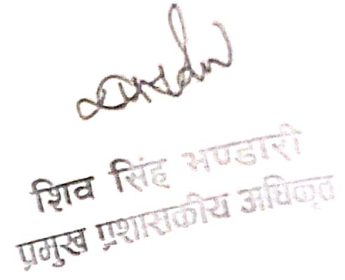 शिव सिंह भण्डारी
प्रमुख प्रशासकीय अधिकृत